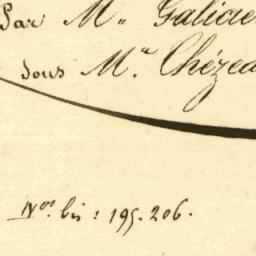 Par M.r Galicie
sous M.r Chézea
N.os bis : 195. 206.